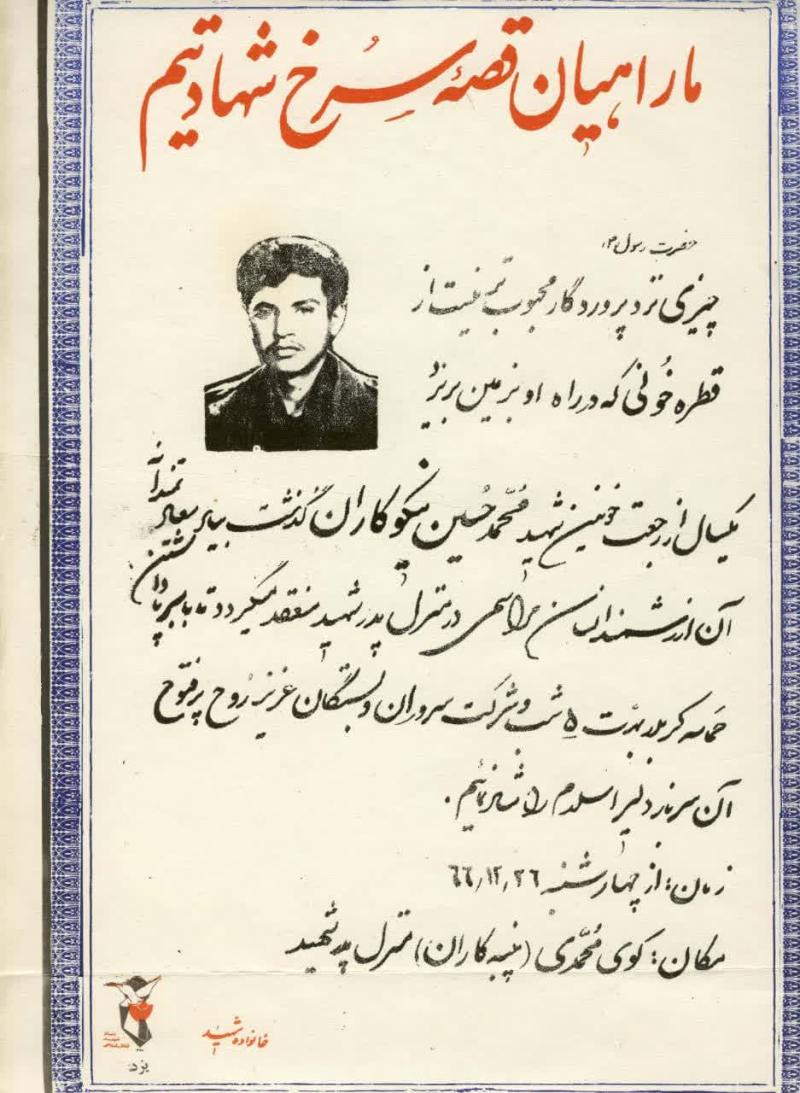 ما راهیان قصهٔ سرخ شهادتیم
حضرت رسول (ص):
چیزی نزد پروردگار محبوب تر نیست از
قطره خُونی که در راه او بز مین بریزد
یکسال از رجعت خونین شهید مُحمّد حُسین نیکو کاران گذشت بیاد سعادتمندانه
آن ارزشمند انسان مراسمی در منزل پدر شهید منعقد میگردد تا با برپا داشتن
حماسه کربلا بمدت ۵ شب و شرکت سروران و بستگان عزیز رُوح پرفتوح
آن سرباز دلیر اسلام را شاد نمائیم.
زمان: از چهارشنبه ۶۶٫۱۲٫۲۶
مکان: کوی مُحمّدی (پنبه کاران) منزل پدر شهید
خانواده شهید
بنیاد شهید انقلاب اسلامی
یزد